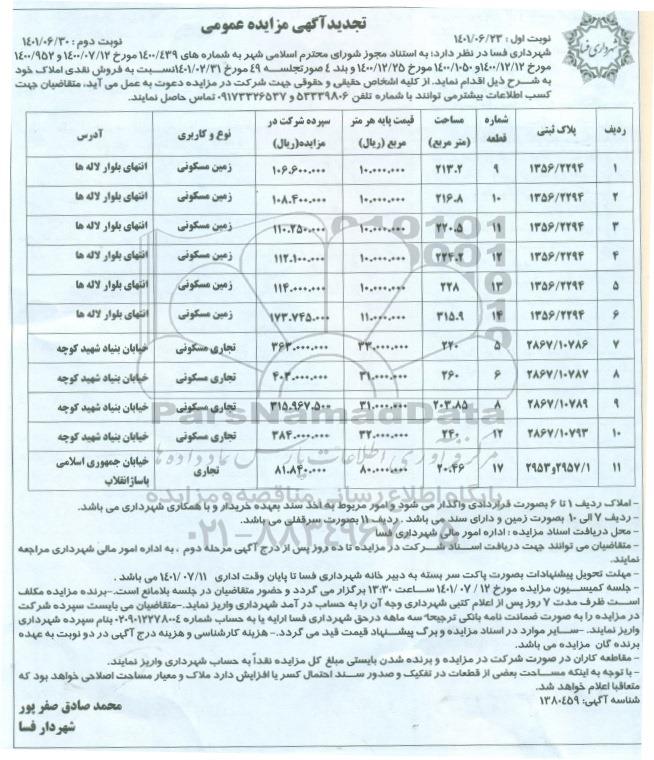 تجدیدآگهی مزایده عمومی
نوبت اول : ۱۴۰۱/۰۶/۲۳
نوبت دوم : ۱۴۰۱/۰۶/۳۰
شهرداری فسا
شهرداری فسا در نظر دارد: به استناد مجوز شورای محترم اسلامی شهر به شماره های ۱۴۰۰/۴۳۹ مورخ ۱۴۰۰/۰۷/۱۲ و ۱۴۰۰/۹۵۲
مورخ ۱۴۰۰/۱۲/۱۲و ۱۴۰۰/۱۰۵۰ مورخ ۱۴۰۰/۱۲/۲۵ و بند ۴ صورتجلسه ۴۹ مورخ ۱۴۰۱/۰۲/۳۱نسبت به فروش نقدی املاک خود
به شرح ذیل اقدام نماید. از کلیه اشخاص حقیقی و حقوقی جهت شرکت در مزایده دعوت به عمل می آید، متقاضیان جهت
کسب اطلاعات بیشترمی توانند با شماره تلفن ۵۳۳۳۹۸۰۶ و ۰۹۱۷۳۳۲۶۵۳۷ تماس حاصل نمایند.
ردیف پلاک ثبتی شماره قطعه مساحت (متر مربع) قیمت پایه هر متر مربع (ریال) سپرده شرکت در مزایده(ریال) نوع و کاربری آدرس
۱ ۱۳۵۶/۲۲۹۴ ۹ ۲۱۳.۲ ۱۰.۰۰۰.۰۰۰ ۱۰۶.۶۰۰.۰۰۰ زمین مسکونی انتهای بلوار لاله ها
۲ ۱۳۵۶/۲۲۹۴ ۱۰ ۲۱۶.۸ ۱۰.۰۰۰.۰۰۰ ۱۰۸.۴۰۰.۰۰۰ زمین مسکونی انتهای بلوار لاله ها
۳ ۱۳۵۶/۲۲۹۴ ۱۱ ۲۲۰.۵ ۱۰.۰۰۰.۰۰۰ ۱۱۰.۲۵۰.۰۰۰ زمین مسکونی انتهای بلوار لاله ها
۴ ۱۳۵۶/۲۲۹۴ ۱۲ ۲۲۴.۲ ۱۰.۰۰۰.۰۰۰ ۱۱۲.۱۰۰.۰۰۰ زمین مسکونی انتهای بلوار لاله ها
۵ ۱۳۵۶/۲۲۹۴ ۱۳ ۲۲۸ ۱۰.۰۰۰.۰۰۰ ۱۱۴.۰۰۰.۰۰۰ زمین مسکونی انتهای بلوار لاله ها
۶ ۱۳۵۶/۲۲۹۴ ۱۴ ۳۱۵.۹ ۱۱.۰۰۰.۰۰۰ ۱۷۳.۷۴۵.۰۰۰ زمین مسکونی انتهای بلوار لاله ها
۷ ۲۸۶۷/۱۰۷۸۶ ۵ ۲۲۰ ۳۳.۰۰۰.۰۰۰ ۳۶۳.۰۰۰.۰۰۰ تجاری مسکونی خیابان بنیاد شهید کوچه
۸ ۲۸۶۷/۱۰۷۸۷ ۶ ۲۶۰ ۳۱.۰۰۰.۰۰۰ ۴۰۳.۰۰۰.۰۰۰ تجاری مسکونی خیابان بنیاد شهید کوچه
۹ ۲۸۶۷/۱۰۷۸۹ ۸ ۲۰۳.۸۵ ۳۱.۰۰۰.۰۰۰ ۳۱۵.۹۶۷.۵۰۰ تجاری مسکونی خیابان بنیاد شهید کوچه
۱۰ ۲۸۶۷/۱۰۷۹۳ ۱۲ ۲۴۰ ۳۲.۰۰۰.۰۰۰ ۳۸۴.۰۰۰.۰۰۰ تجاری مسکونی خیابان بنیاد شهید کوچه
۱۱ ۲۹۵۷/۱و۲۹۵۳ ۱۷ ۲۰.۴۶ ۸۰.۰۰۰.۰۰۰ ۸۱.۸۴۰.۰۰۰ تجاری خیابان جمهوری اسلامی پاساژانقلاب
ParsNamadData
مرکز فرآوری اطلاعات پارس نماد داده ها
پایگاه اطلاع رسانی مناقصه و مزایده
۰۲۱-۸۸۳۴۹۶۷۰-۵
- املاک ردیف ۱ تا ۶ بصورت قراردادی واگذار می شود و امور مربوط به اخذ سند بعهده خریدار و با همکاری شهرداری می باشد.
- ردیف ۷ الی ۱۰ بصورت زمین و دارای سند می باشد . ردیف ۱۱ بصورت سرقفلی می باشد.
- محل دریافت اسناد مزایده : اداره امور مالی شهرداری فسا
- متقاضیان می توانند جهت دریافت اسناد شرکت در مزایده تا ده روز پس از درج آگهی مرحله دوم ، به اداره امور مالی شهرداری مراجعه
نمایند.
- مهلت تحویل پیشنهادات بصورت پاکت سر بسته به دبیر خانه شهرداری فسا تا پایان وقت اداری ۱۴۰۱/۰۷/۱۱ می باشد .
- جلسه کمیسیون مزایده مورخ ۱۲ / ۰۷ / ۱۴۰۱ ساعت ۱۳:۳۰ برگزار می گردد و حضور متقاضیان در جلسه بلامانع است.-برنده مزایده مکلف
است ظرف مدت ۷ روز پس از اعلام کتبی شهرداری وجه آن را به حساب در آمد شهرداری واریز نماید.-متقاضیان می بایست سپرده شرکت
در مزایده را به صورت ضمانت نامه بانکی ترجیحاً سه ماهه درحق شهرداری فسا ارایه یا به حساب شماره ۰۲۰۹۰۱۲۲۷۸۰۰۴ بنام سپرده شهرداری
واریز نمایند. -سایر موارد در اسناد مزایده و برگ پیشنهاد قیمت قید می گردد.- هزینه کارشناسی و هزینه درج آگهی در دو نوبت به عهده
برنده گان مزایده می باشد.
- مقاطعه کاران در صورت شرکت در مزایده و برنده شدن بایستی مبلغ کل مزایده نقداً به حساب شهرداری واریز نمایند.
- با توجه به اینکه مساحت بعضی از قطعات در تفکیک و صدور سند احتمال کسر یا افزایش دارد ملاک و معیار مساحت اصلاحی خواهد بود که
متعاقبا اعلام خواهد شد.
شناسه آگهی: ۱۳۸۰۴۵۹
محمد صادق صفر پور
شهردار فسا